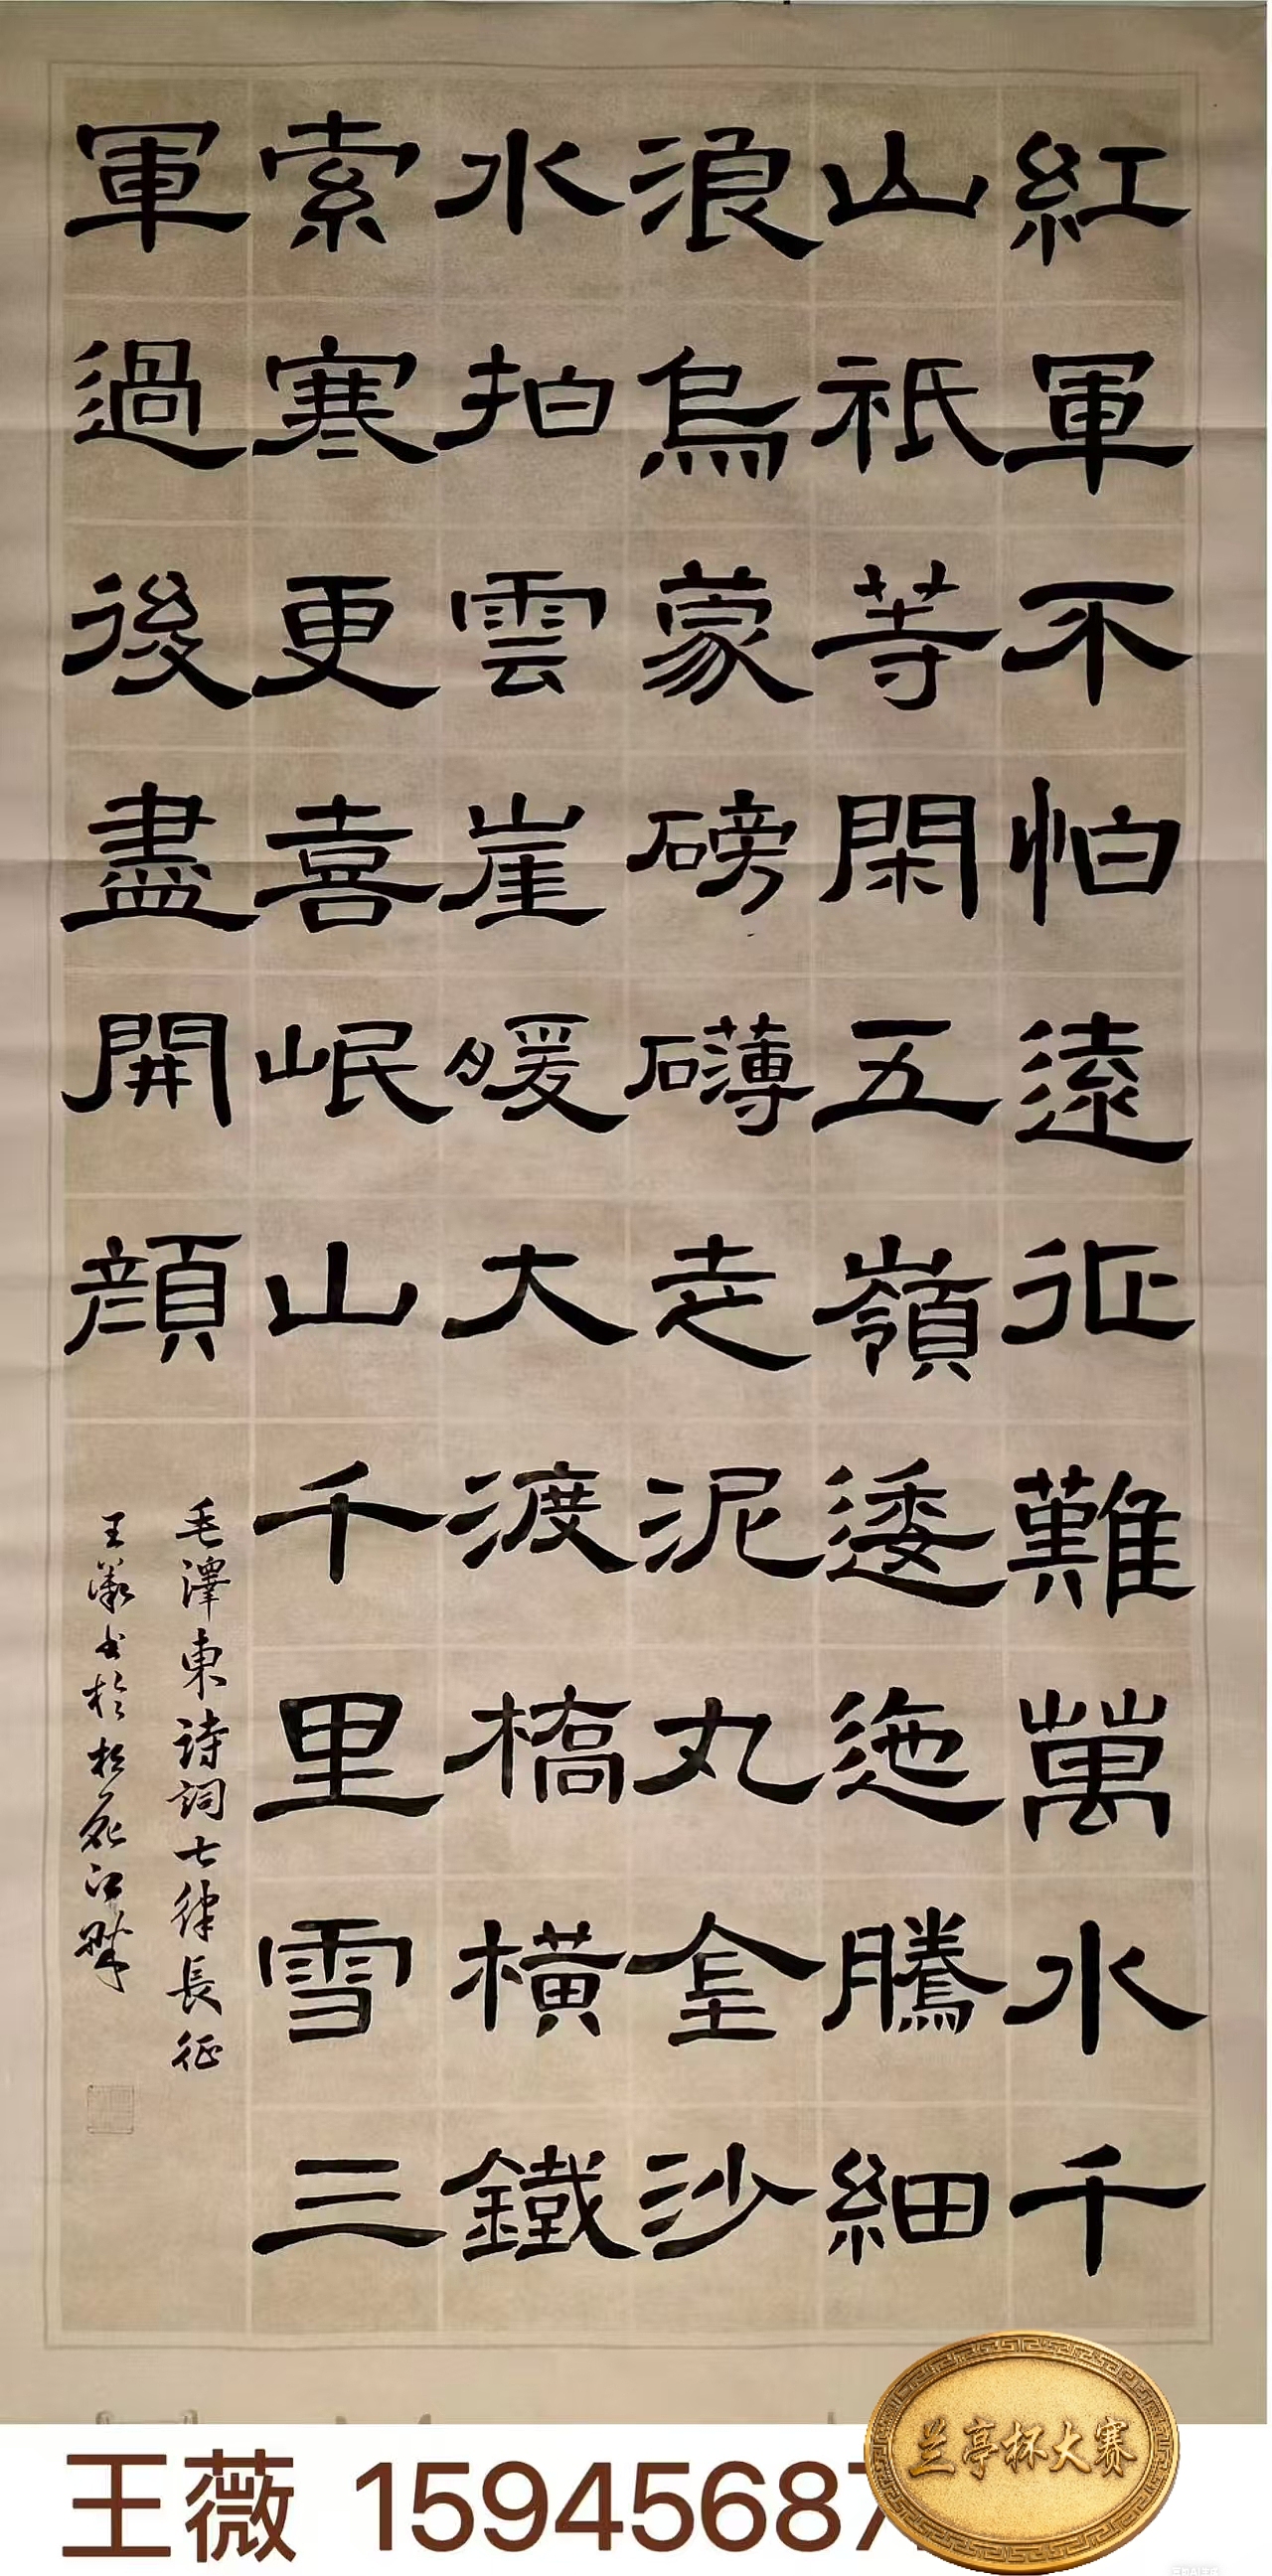 紅軍不怕遠征難萬水千
山祇等閑五嶺逶迤騰細
浪烏蒙磅礴走泥丸金沙
水拍雲崖暖大渡橋橫鐵
索寒更喜岷山千里雪三
軍過後盡開顏
毛澤東詩詞七律長征
王薇書於松花江畔
王薇 15945687
兰亭杯大赛